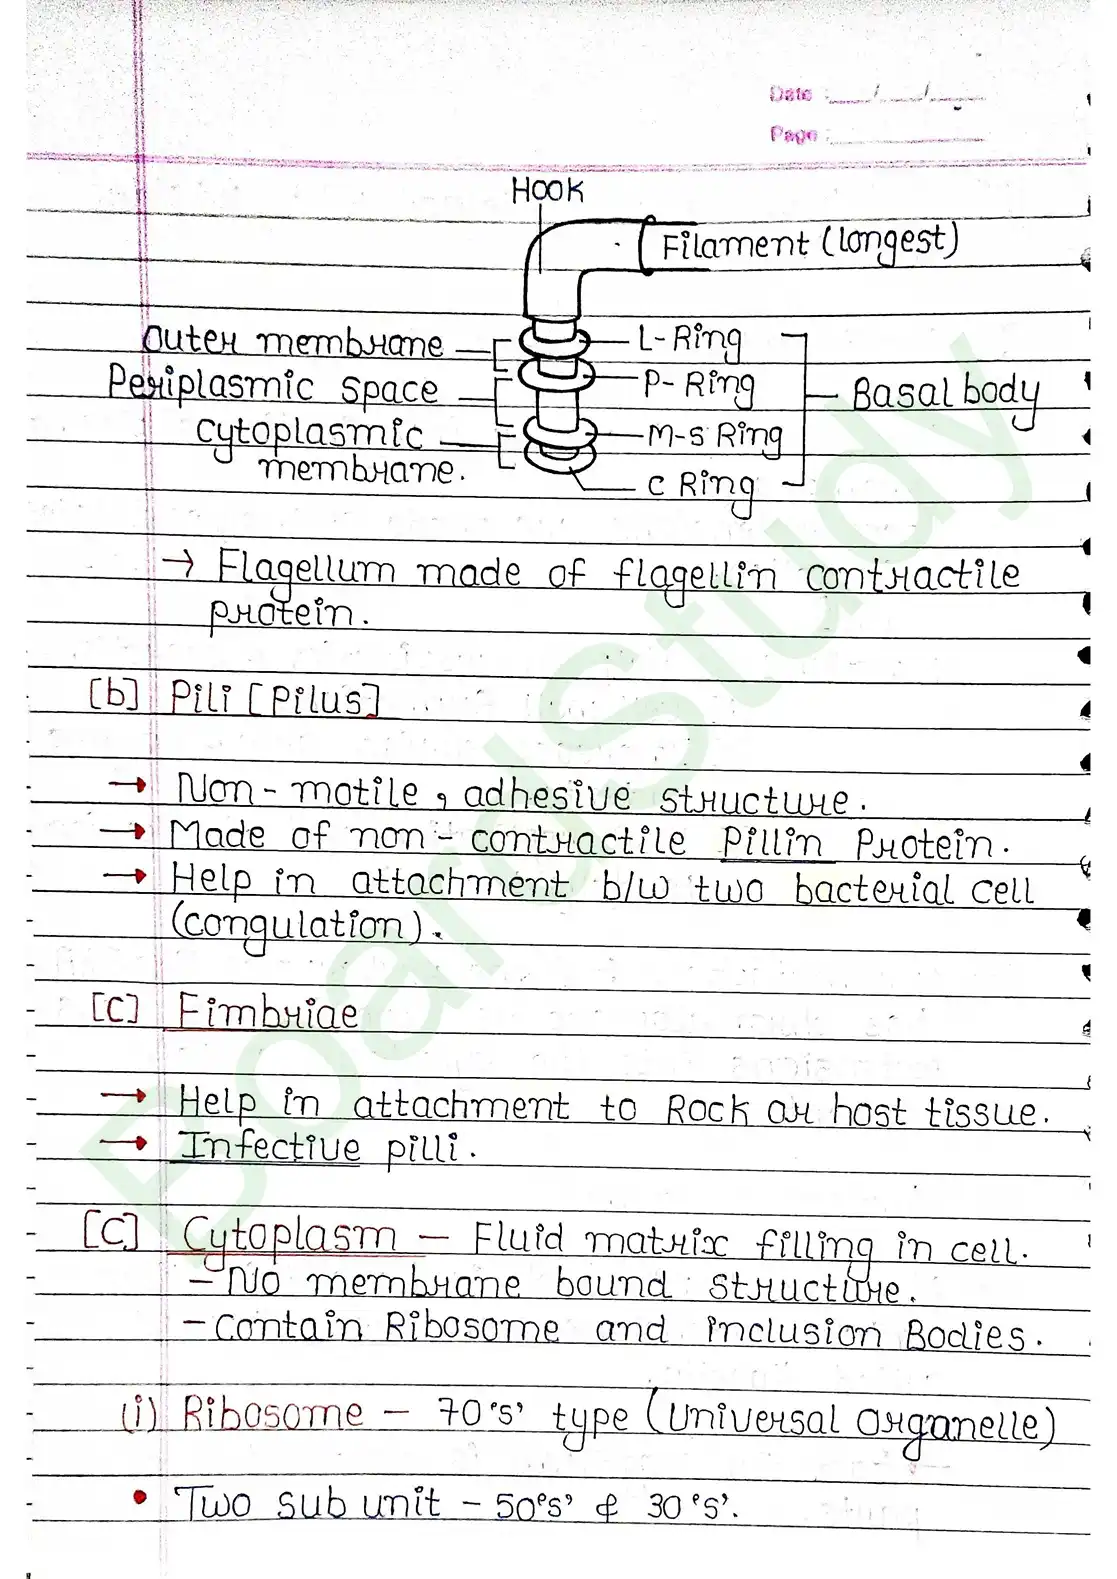 Date :
Page :
Hook
Filament (longest)
Outer membrane
L-Ring
Periplasmic space
P-Ring
Basal body
cytoplasmic
membrane.
M-S Ring
C Ring
→ Flagellum made of flagellin contractile
protein.
[b] Pili [Pilus]
→ Non-motile, adhesive structure.
→ Made of non-contractile Pillin Protein.
→ Help in attachment b/w two bacterial cell
(congulation).
[C] Fimbriae
→ Help in attachment to Rock or host tissue.
→ Infective pilli.
[C] Cytoplasm - Fluid matrix filling in cell.
- No membrane bound structure.
- contain Ribosome and inclusion Bodies.
(i) Ribosome - 70's' type (Universal Organelle)
• Two sub unit - 50's' & 30's'.
BoardStudy